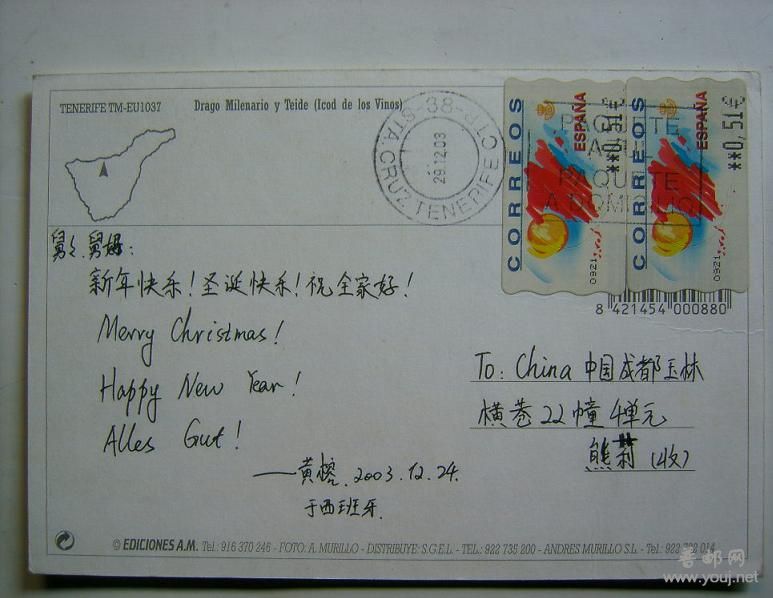 TENERIFE TM-EU1037
Drago Milenario y Teide (Icod de los Vinos)
38
STA. CRUZ TENERIFE
29.12.03
PAQUETE
AZUL
PAQUETE
A DOMICILIO
CORREOS
ESPAÑA
**0,51€
0921
CORREOS
ESPAÑA
**0,51€
0921
8 421454 000880
舅舅、舅妈:
新年快乐!圣诞快乐!祝全家好!
Merry Christmas!
Happy New Year!
Alles Gut!
——黄榕 2003.12.24.
于西班牙.
To: China 中国成都玉林
横巷22幢4单元
熊莉(收)
© EDICIONES A.M. Tel.: 916 370 246 - FOTO: A. MURILLO - DISTRIBUYE: S.G.E.L. - TEL.: 922 735 200 - ANDRES MURILLO S.L. - Tel.: 922 782 014
善邮网
www.youj.net